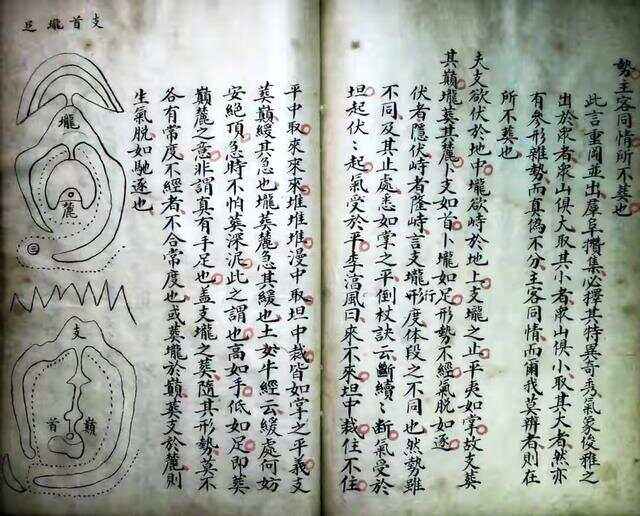 勢主客同情所不葬也
此言重岡並出羣阜攢集必擇其特異奇秀氣象俊雅之
出於衆者衆山俱大取其小者衆山俱小取其大者然亦
有參形雜勢而真偽不分主客同情而爾我莫辨者則在
所不葬也
夫支欲伏於地中壠欲峙於地上支壠之止平夷如掌故支葬
其巔壠葬其麓卜支如首卜壠如足形勢不經氣脱如逐
伏者隱伏峙者隆峙言支壠形行度體段之不同也然勢雖
不同及其止處悉如掌之平倒杖訣云斷續〻斷氣受於
坦起伏〻起氣受於平李淯風曰來不來坦中裁住不住
平中取來來來堆堆堆漫中取坦中裁皆如掌之平義支
葬巔緩其急也壠葬麓急其緩也土牛經云緩處何妨
安絶頂急時不怕葬深泥此之謂也高如手低如足即葬
巔麓之意非謂真有手足也盖支壠之葬隨其形勢莫不
各有常度不經者不合常度也或葬壠於巔葬支於麓則
生氣脱如馳逐也
支首壠足
壠
麓
支
巔首